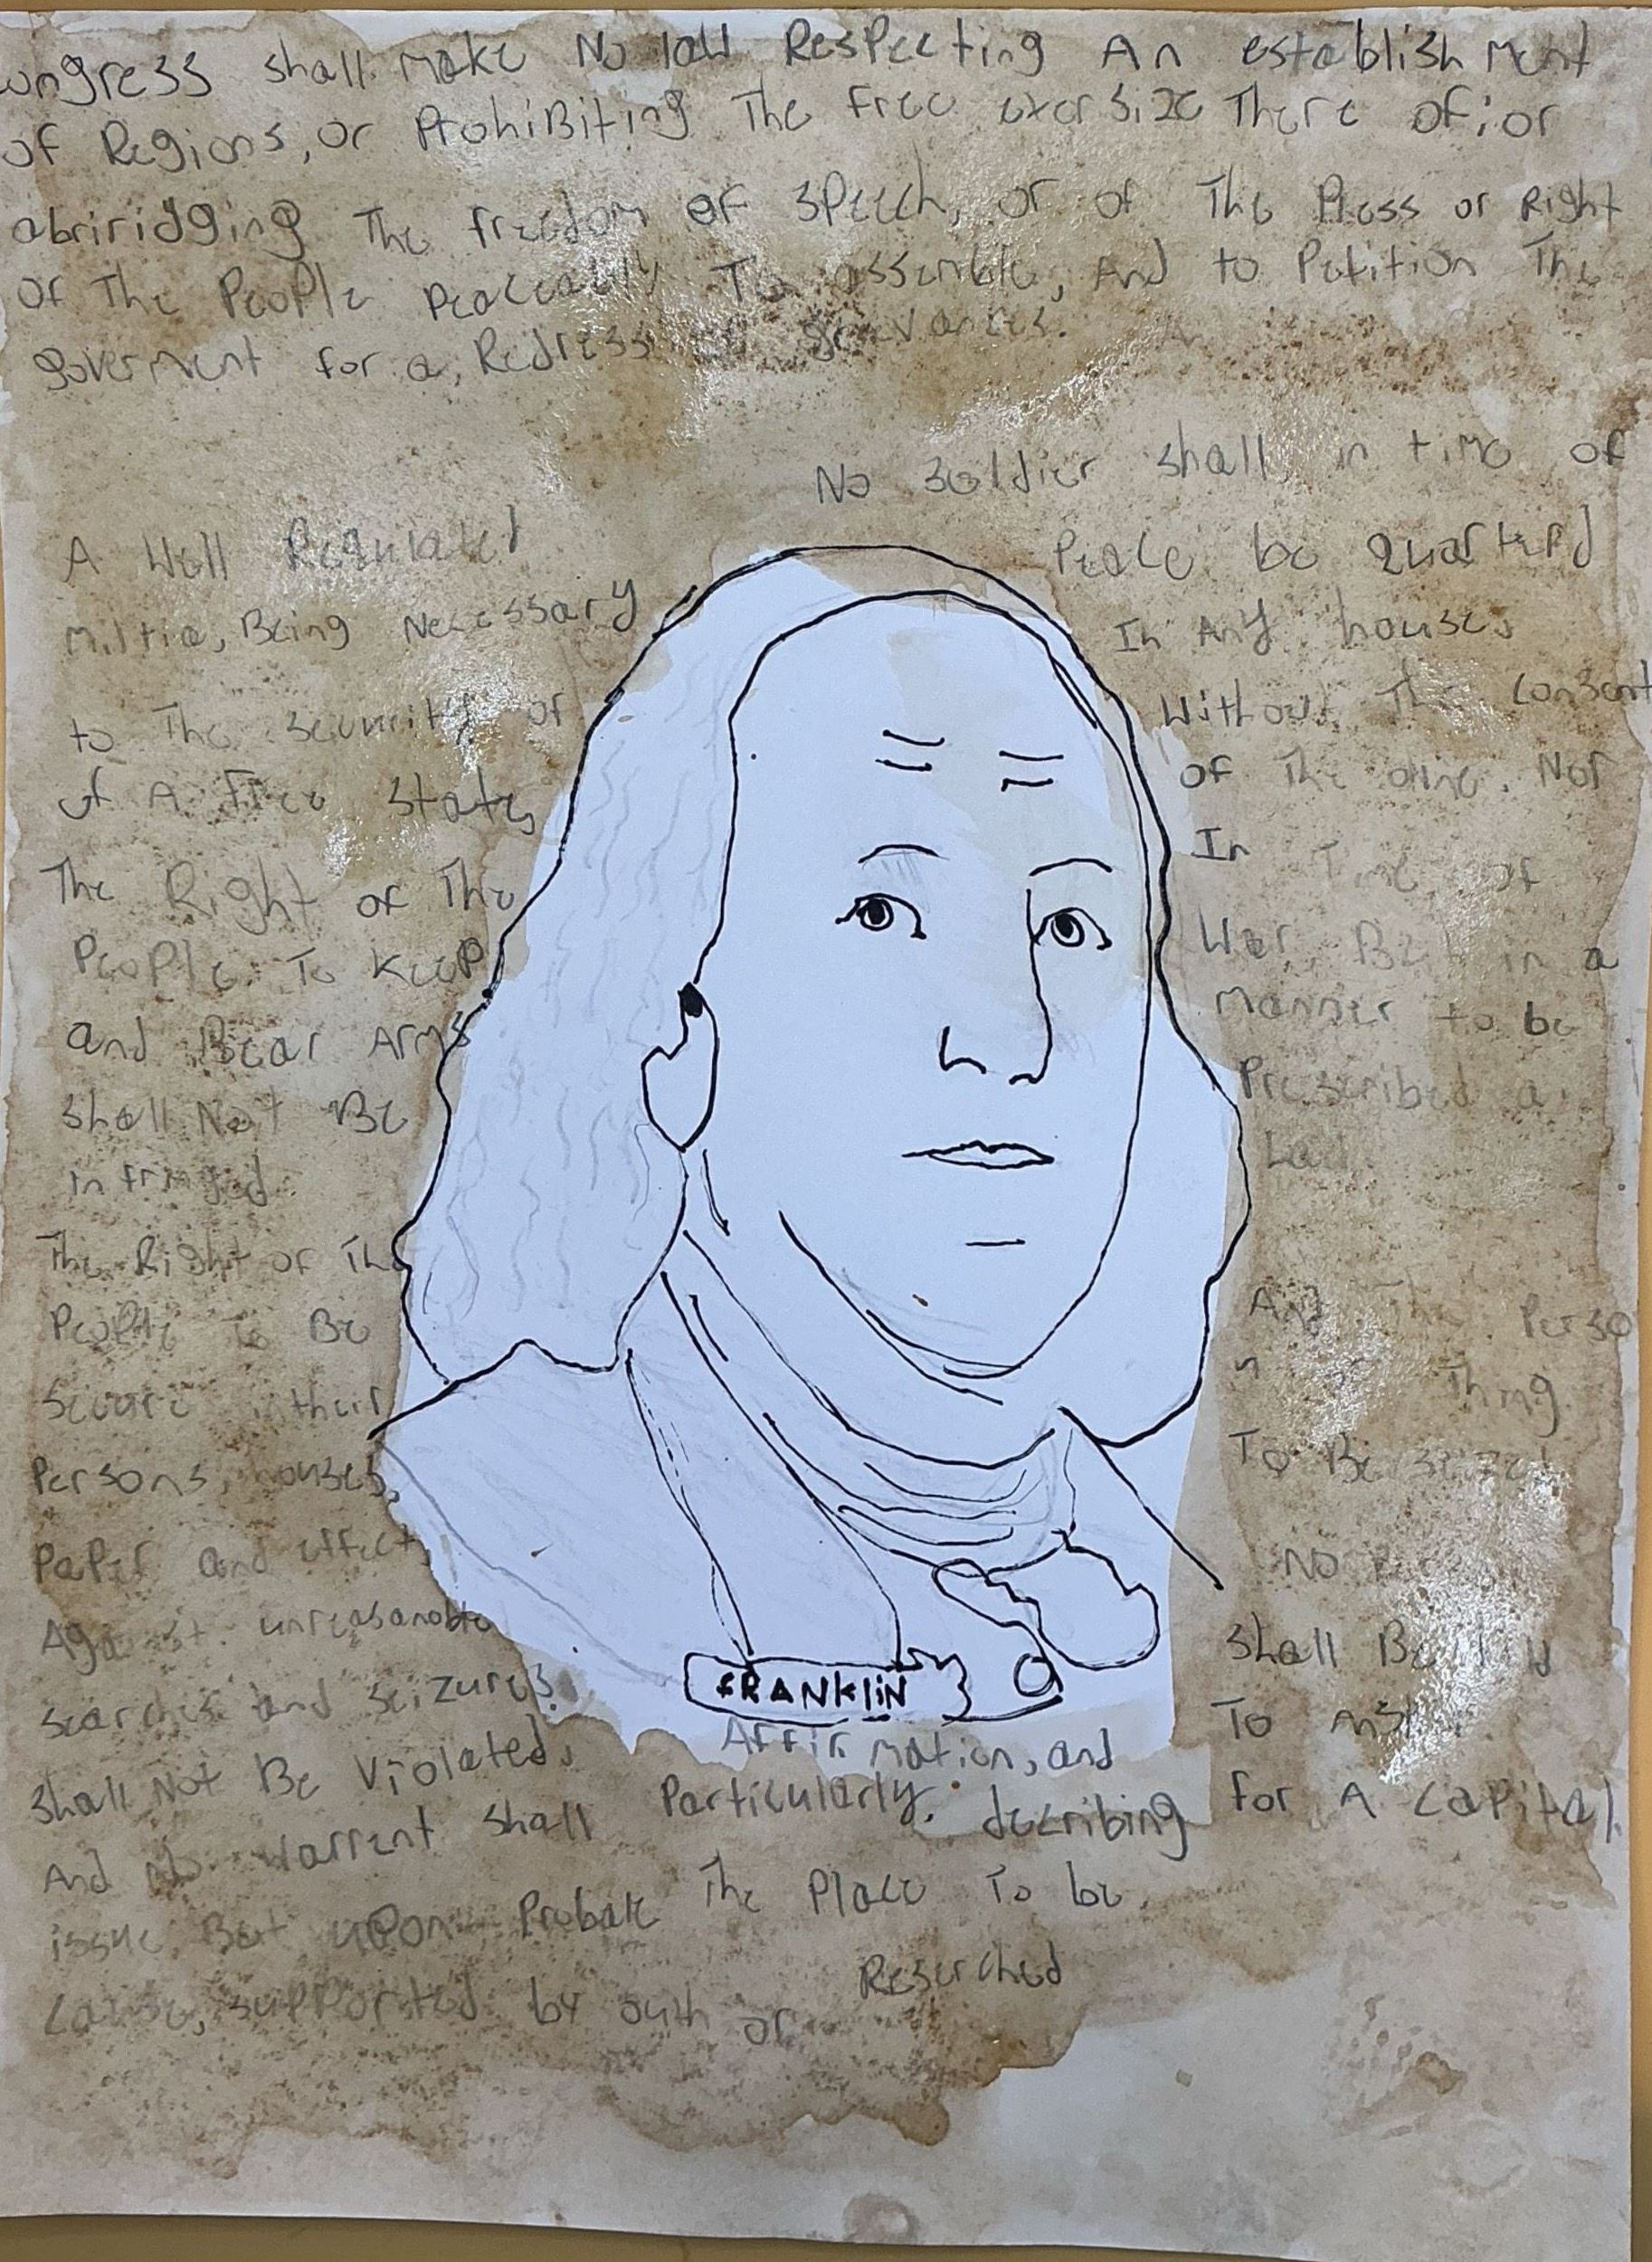 ongress shall make No law Respecting An establishment
of Regions, or Prohibiting The free exorsize There of; or
abriridging The freedom of speech, or of The Press or Right
of The People Peaceably To assemble, And to Petition The
goverment for a, Redress grevances.
A Well Regulated
miltia, Being Necessary
to The security of
of A free state,
The Right of The
People To keep
and Bear Arms
shall Not Be
infringed
The Right of The
People To Be
Secure in their
Persons, houses,
Paper and effects,
Against unreasanoble
searches and seizures
shall Not Be Violated,
And no warrent shall
issue But upon Probale
Cause, supported by outh or
Affirmation, and
Particularly, decribing
The Place To be
Reserched
No soldier shall in time of
Peace be quarterd
In Any house,
Without The consent
of The owne. Nor
In Time of
War, But in a
manner to be
Prescribed a
Law.
And The Perso
n Thing
To Be seized
No
Shall Be
To
for A capital
FRANKLIN